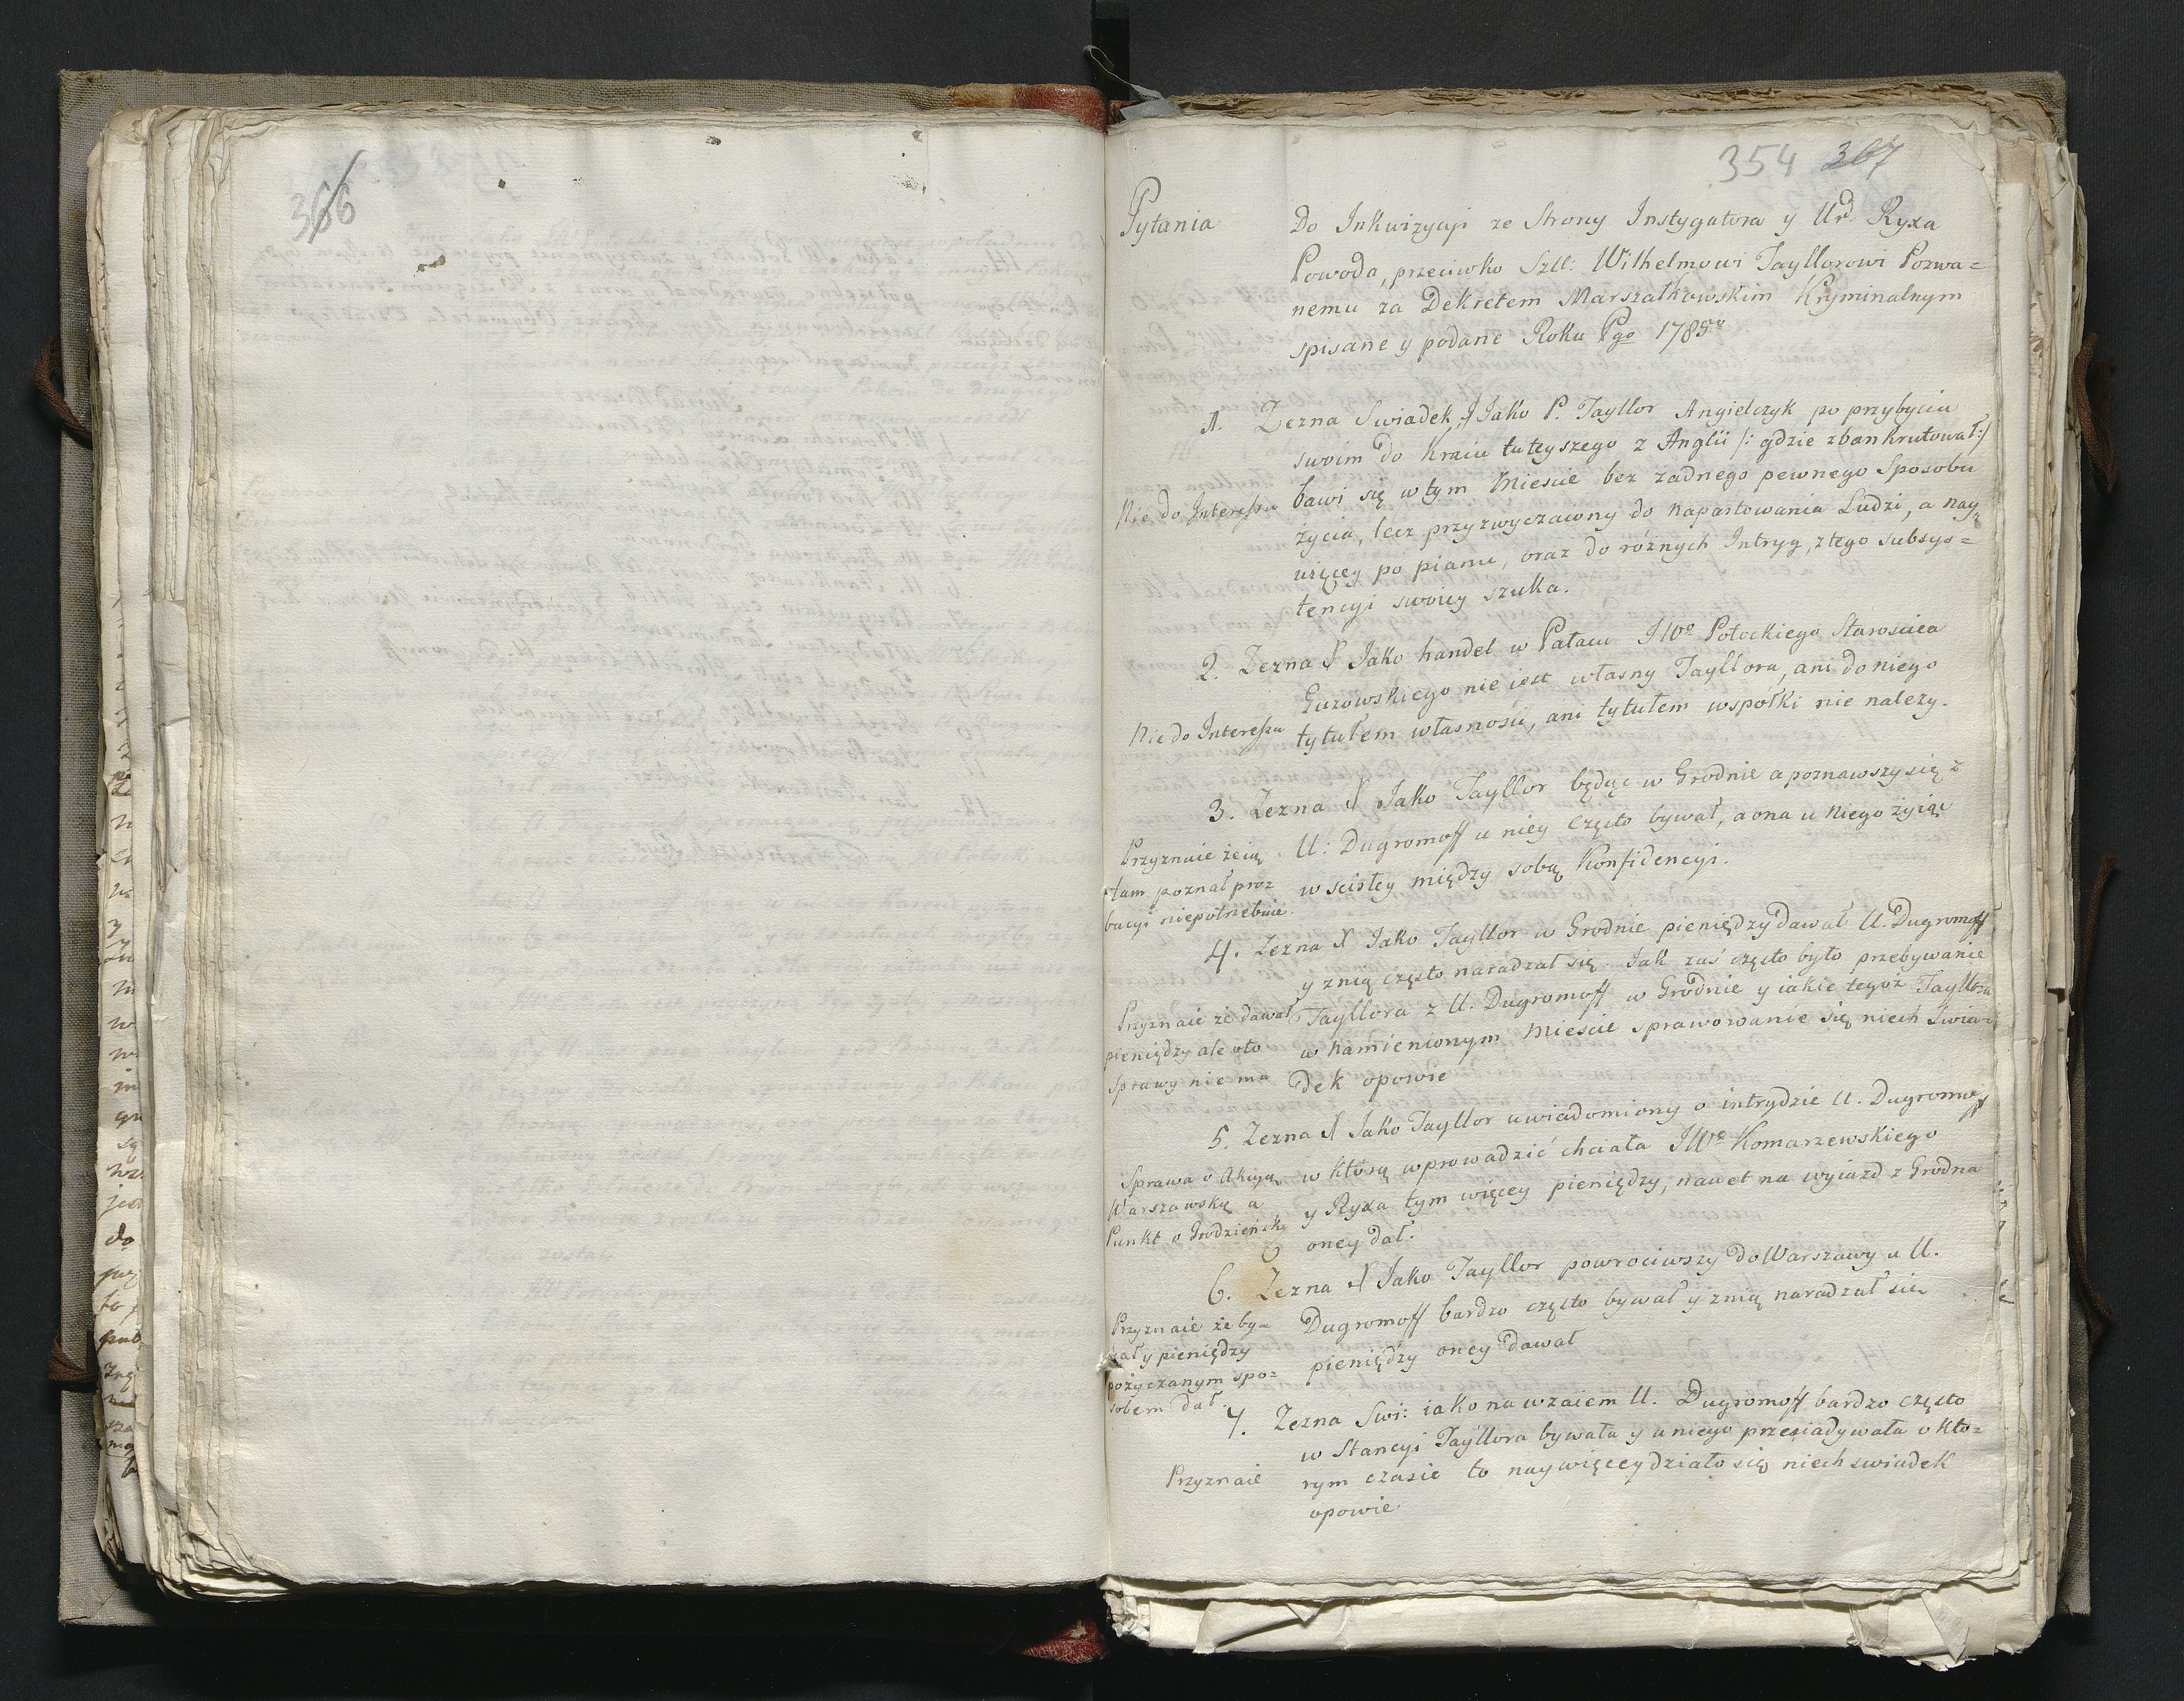 366
354 367
Pytania
Do Inkwizycyi ze Strony Instygatora y Urd. Ryxa
Powoda, przeciwko Szll: Wilhelmowi Tayllorowi Pozwa=
nemu za Dekretem Marszałkowskim Kryminalnym
spisane y podane Roku Pgo 1785o
1. Zezna Swiadek, Jako P. Tayllor Angielczyk po przybyciu
swoim do Kraiu tuteyszego z Anglii /: gdzie zbankrutował :/
Nie do Interessu
bawi się w tym Miescie bez żadnego pewnego Sposobu
życia, lecz przyzwyczaiony do napastowania Ludzi, a nay
więcey po pianu, oraz do różnych Intryg, z tego subsys=
tencyi swoiey szuka.
2. Zezna X Jako handel w Pałacu JWo Potockiego Starościca
Guzowskiego nie iest własny Tayllora, ani do niego
Nie do Interessu
tytułem własności, ani tytułem wspołki nie należy.
3. Zezna X Jako Tayllor będąc w Grodnie a poznawszy się z
U: Dugromoff u niey często bywał, a ona u niego żyiąc
w scisłey między sobą Konfidencyi.
Przyznaie że ią
tam poznał pro=
bacyi niepotrzebuie.
4. Zezna X Jako Tayllor w Grodnie pieniędzy dawał U. Dugromoff
y z nią często naradzał się. Jak zaś często było przebywanie
Tayllora z U. Dugromoff w Grodnie y iakie tegoż Tayllora
w namienionym Miescie sprawowanie się niech Swia=
dek opowie
Przyznaie ze dawał
pieniędzy ale oto
sprawy nie ma
5. Zezna X Jako Tayllor uwiadomiony o intrydzie U. Dugromoff
w którą wprowadzić chciała JWo Komarzewskiego
y Ryxa tym więcey pieniędzy, nawet na wyiazd z Grodna
oney dał.
Sprawa o Akcyą
Warszawską a
Punkt o Grodzieńską
6. Zezna X Jako Tayllor powrociwszy do Warszawy u U.
Dugromoff bardzo często bywał y z nią naradzał się
pieniędzy oney dawał
Przyznaie że by=
wał y pieniędzy
pożyczanym spo=
sobem dał.
7. Zezna Swi: iako nawzaiem U. Dugromoff bardzo często
w Stancyi Tayllora bywała y u niego przesiadywała o kto=
rym czasie to naywięcey działo się niech swiadek
opowie
Przyznaie